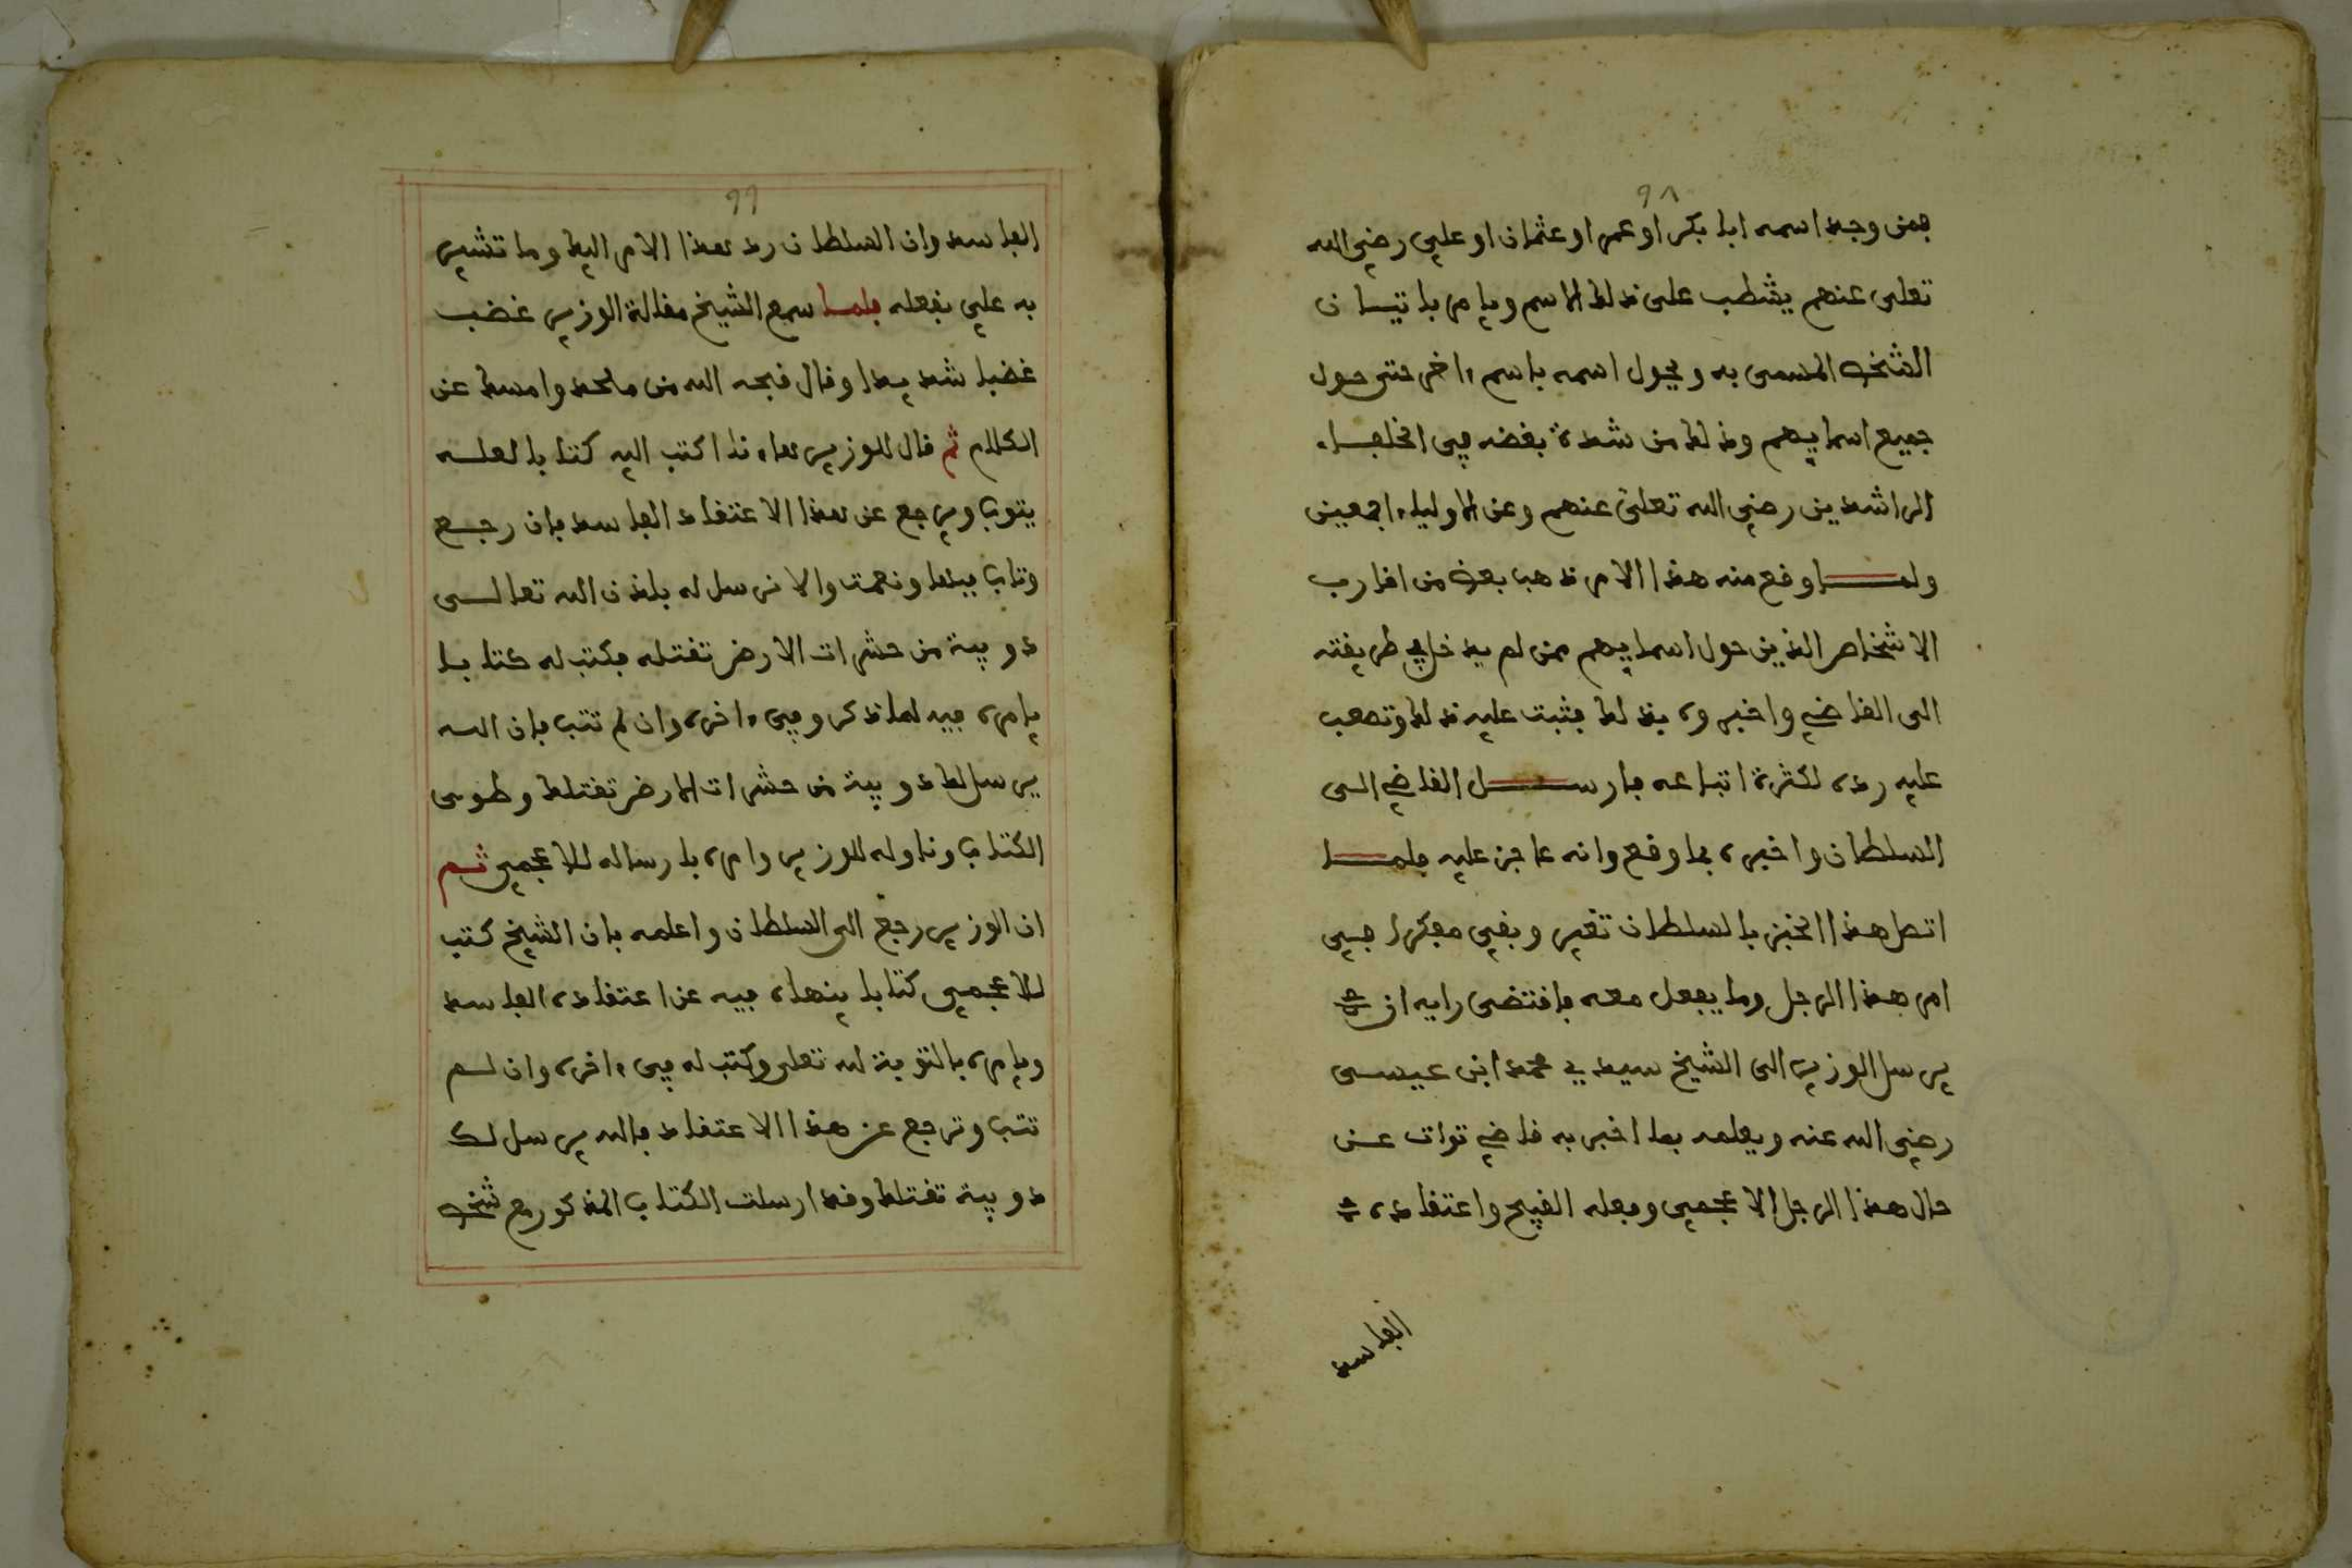 ٩٨
فمن وجد اسمه ابا بكر او عمر او عثمان او علي رضي الله
تعلى عنهم يشطب على ذلك الاسم ويامر باتيان
الشخص المسمى به ويحول اسمه باسم ءاخر حتى حول
جميع اسمايهم وذلك من شدة بغضه في الخلفاء
الراشدين رضي الله تعلى عنهم وعن الاولياء اجمعين
ولمــا وقع منه هذا الامر ذهب بعض من اقارب
الاشخاص الذين حول اسمايهم ممن لم يدخل في طريقته
الى القاضي واخبروه بذلك فثبت عليه ذلك وتصعب
عليه رده لكثرة اتباعه فارســل القاضي الى
السلطان واخبره بما وقع وانه عاجز عليه فلمــا
اتصل هذا الخبر بالسلطان تغير وبقي مفكرا في
امر هذا الرجل وما يفعل معه فاقتضى رايه ان
يرسل الوزير الى الشيخ سيدي محمد ابن عيسى
رضي الله عنه ويعلمه بما اخبر به قاضي توات عن
حال هذا الرجل الاعجمي وفعله القبيح واعتقاده
الفاسد
٩٩
الفاسد وان السلطان رد هذا الامر اليك وما تشير
به علي نفعله فلمــا سمع الشيخ مقالة الوزير غضب
غضبا شديدا وقال قبحه الله من ملحد وامسك عن
الكلام ثم قال للوزير هاءنا اكتب اليه كتابا لعلــه
يتوب ويرجع عن هذا الاعتقاد الفاسد فان رجــع
وتاب فبها ونعمت والا نرسل له باذن الله تعالــى
دويبة من حشرات الارض تقتله فكتب له كتابــا
يامره فيه لما ذكر وفي ءاخره وان لم تتب فان اللــه
يرسل لك دويبة من حشرات الارض تقتلك وطوى
الكتاب وناوله للوزير وامره بارساله للاعجمي ثــم
ان الوزير رجع الى السلطان واعلمه بان الشيخ كتب
للاعجمي كتابا ينهاه فيه عن اعتقاده الفاسد
ويامره بالتوبة لله تعلى وكتب له في ءاخره وان لــم
تتب وترجع عن هذا الاعتقاد فالله يرسل لك
دويبة تقتلك وقد ارسلت الكتاب المذكور مع شخص